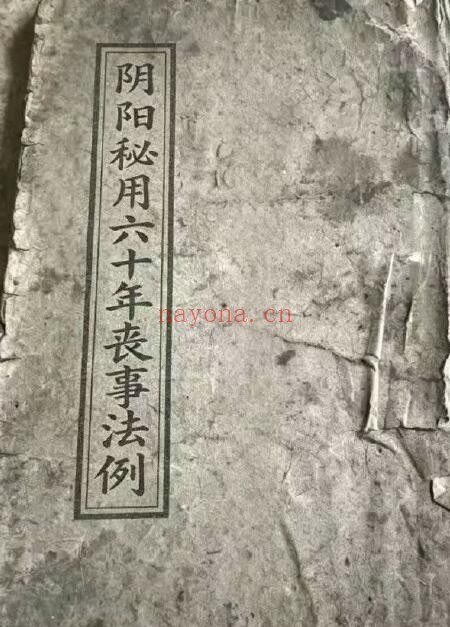 阴阳秘用六十年丧事法例
nayona.cn